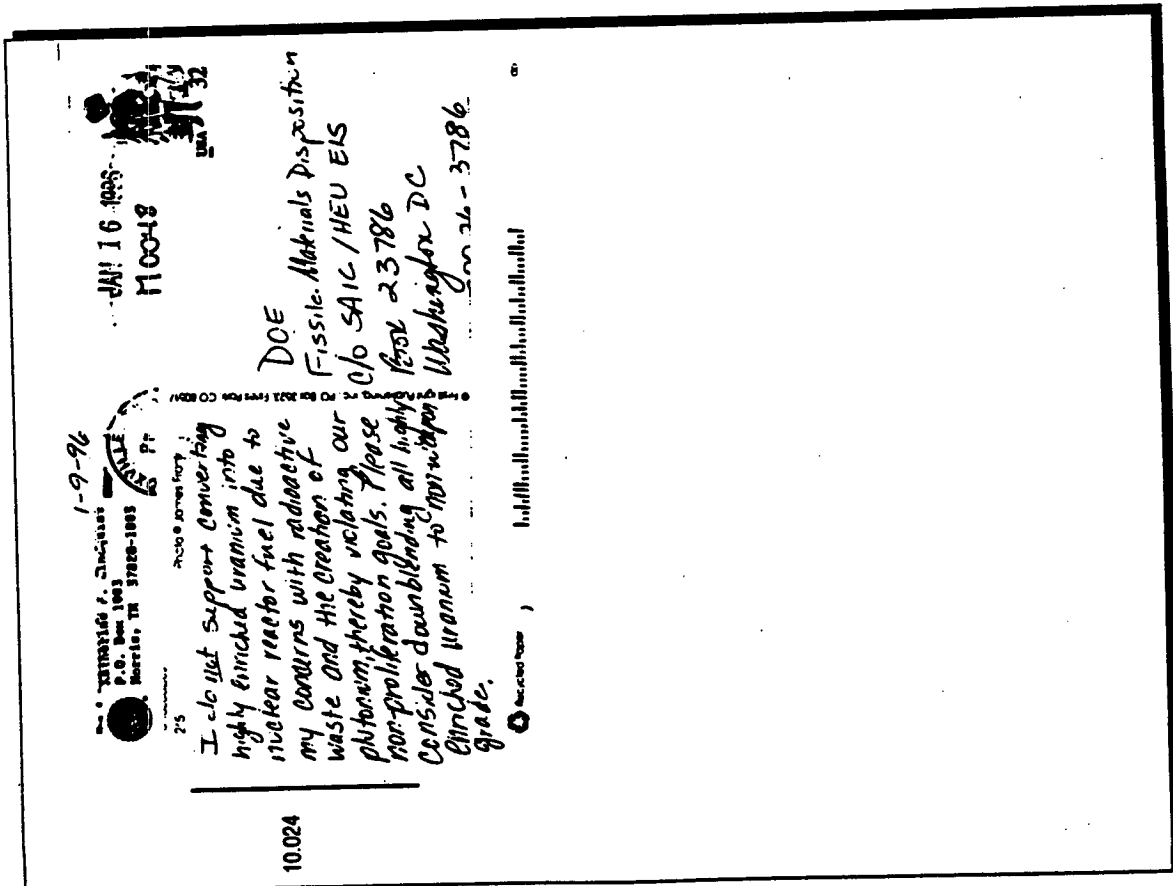 10.024
P.O. Box 1003
Norris, TN 37828-1003
1-9-96
I do not support converting
highly enriched uranium into
nuclear reactor fuel due to
my concerns with radioactive
waste and the creation of
plutonium, thereby violating our
non-proliferation goals. Please
consider downblending all highly
enriched uranium to nonweapon
grade.
Recycled Paper
JAN 16 1996
M0048
USA 32
DOE
Fissile Materials Disposition
C/O SAIC / HEU EIS
23786
Washington DC
26-3786